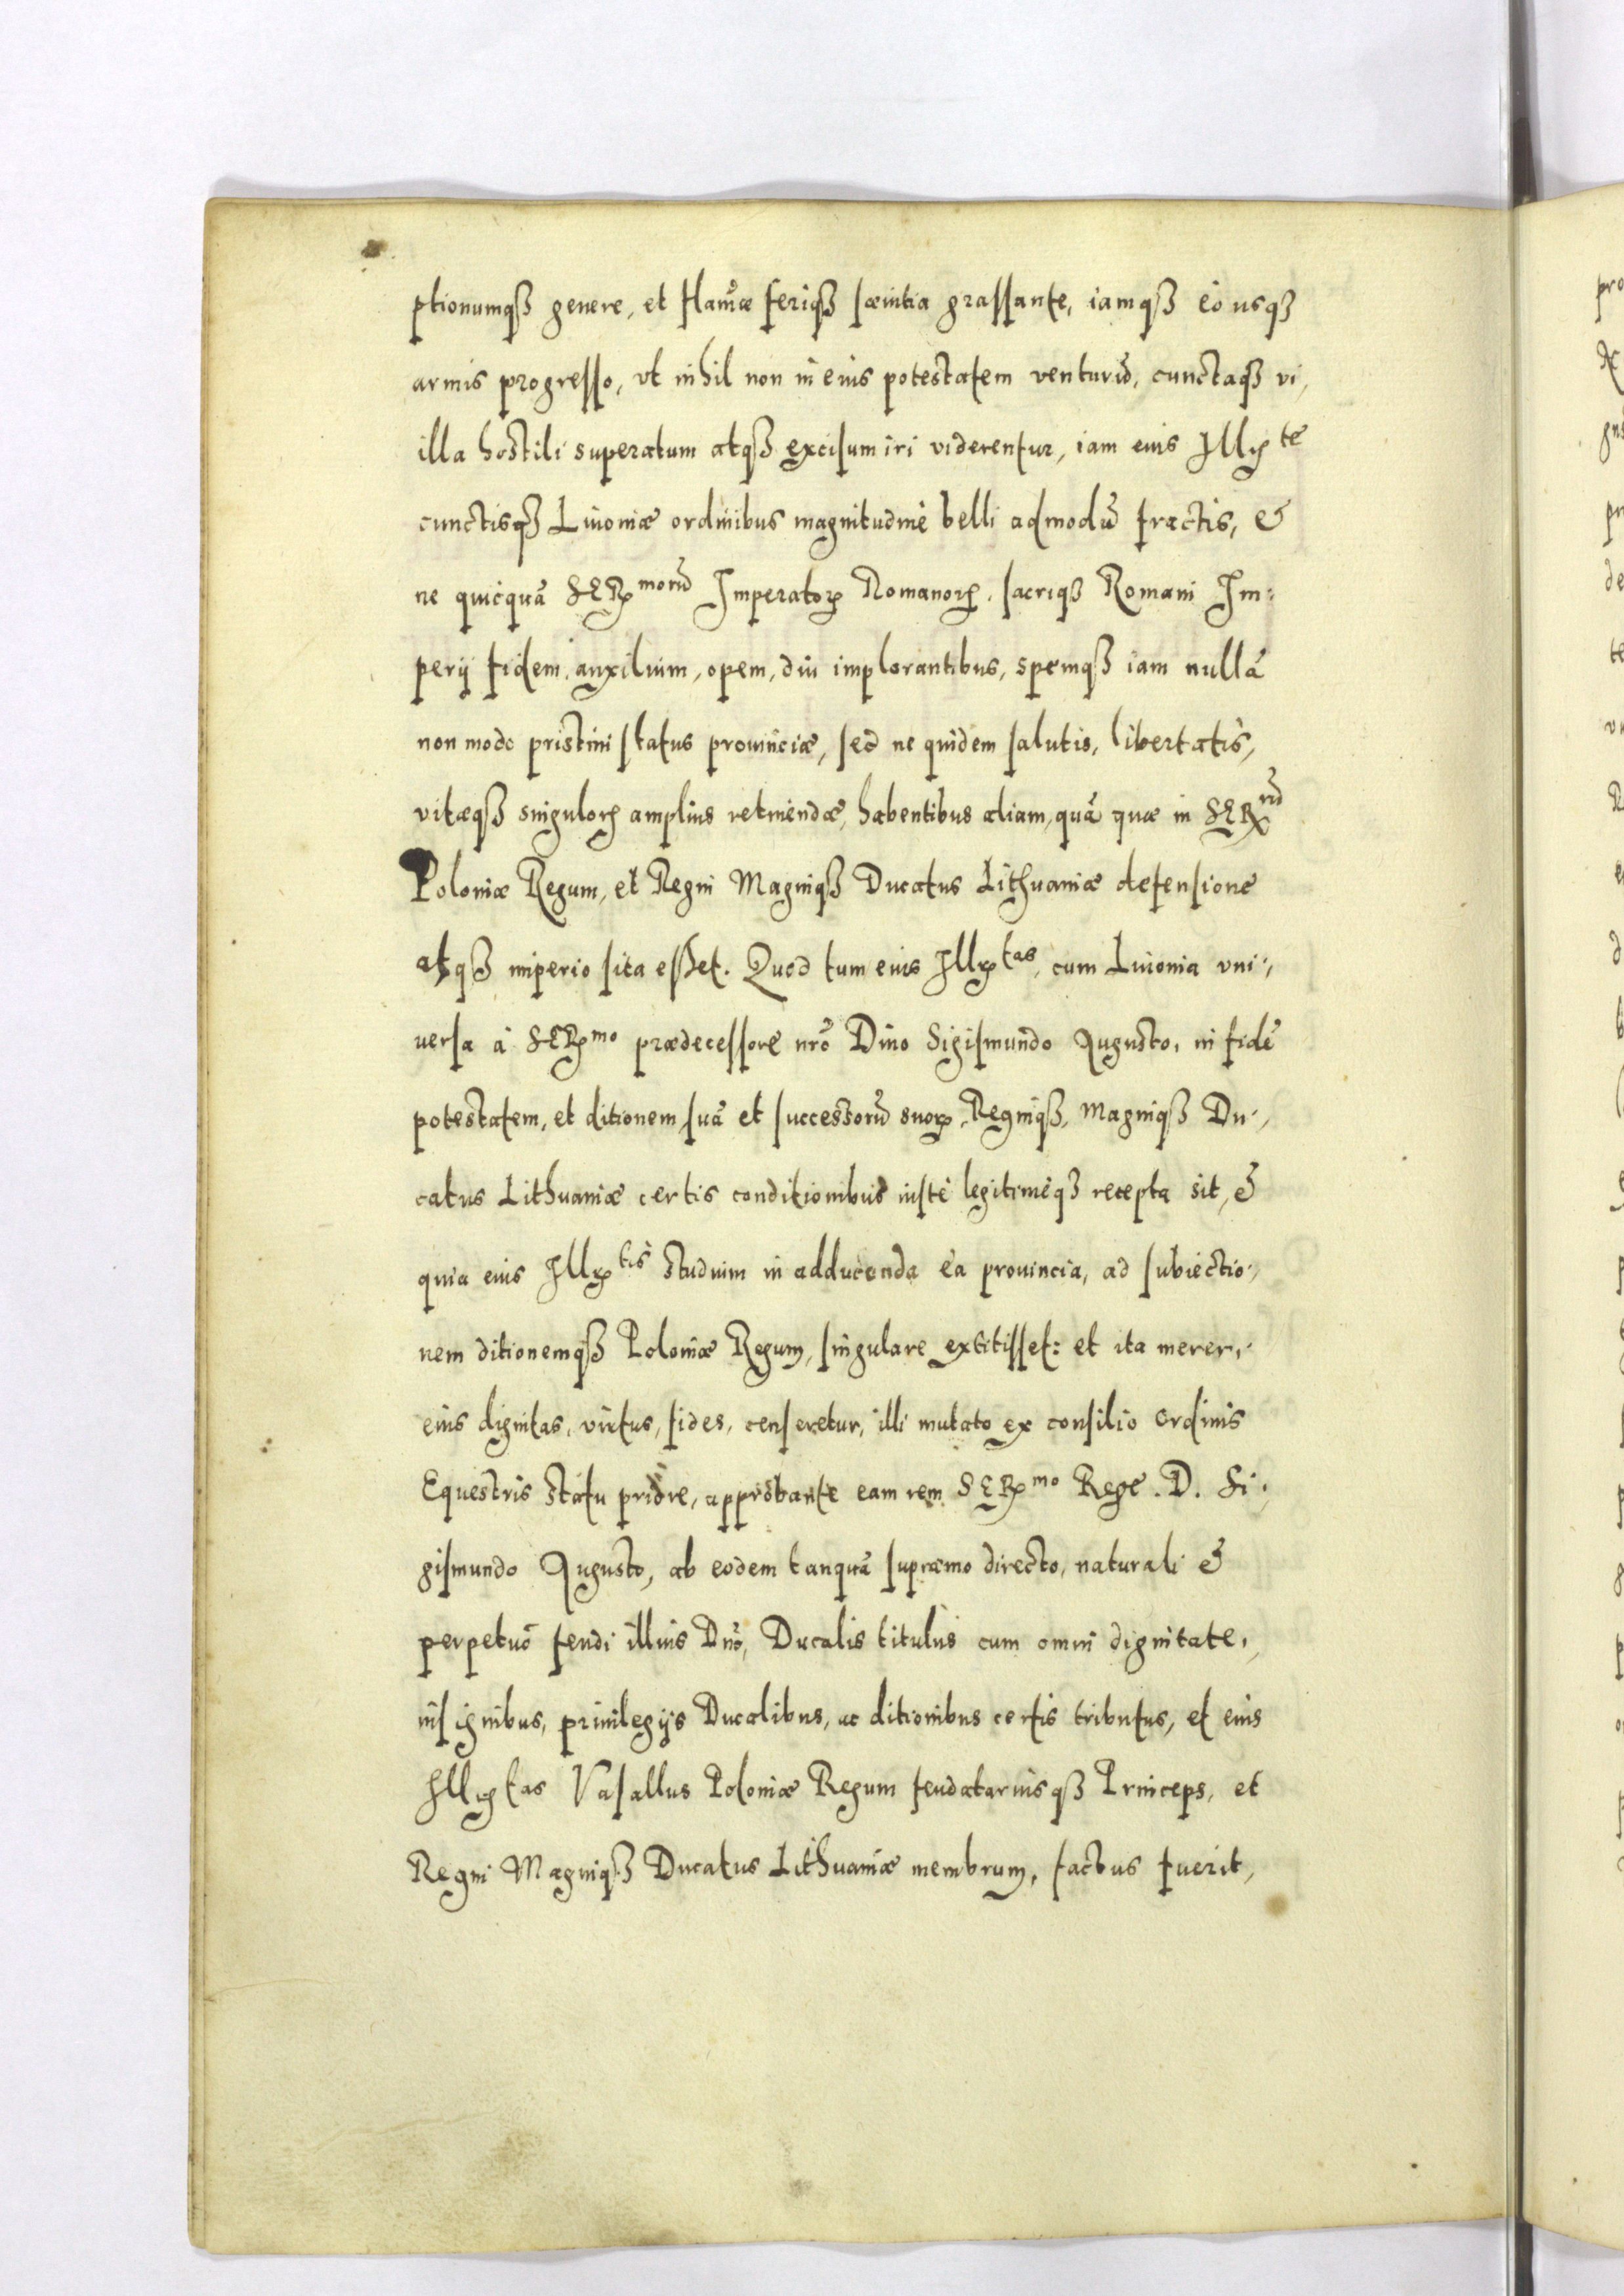 ptionumqꝫ genere, et flam̃æ feriqꝫ sæuitia grassante, iamqꝫ eò usqꝫ
armis progresso, vt nihil non in eius potestatem venturũ, cunctaqꝫ vi,
illa hostili superatum atqꝫ excisum iri viderentur, iam eius Illꝝ^te
cunctisqꝫ Liuoniæ ordinibus magnitudine belli admodũ fractis, &
ne quicquã SERꝝ^morũ Imperatoꝝ Romanoꝝ, sacriqꝫ Romani Im:
perij fidem, auxilium, opem, diu implorantibus, spemqꝫ iam nullã
non modo pristini status prouinciæ, sed ne quidem salutis, libertatis,
vitæqꝫ singuloꝝ amplius retinendæ, habentibus aliam, quã quæ in SERꝝ^rũ
Poloniæ Regum, et Regni Magniqꝫ Ducatus Lithuaniæ defensione
atqꝫ imperio sita esset. Quod tum eius Illꝝ^tas, cum Liuonia vni:,
uersa à SERꝝ^mo prædecessore nrõ Dño Sigismundo Augusto, in fidẽ
potestatem, et ditionem suã et successorũ suoꝝ, Regniqꝫ, Magniqꝫ Du:,
catus Lithuaniæ certis conditionibus iustè legitimèqꝫ recepta sit, &
quia eius Illꝝ^tis studium in adducenda ea prouincia, ad subiectio:,
nem ditionemqꝫ Poloniæ Regum, singulare extitisset: et ita mereri,
eius dignitas, virtus, fides, censeretur, illi mutato ex consilio Ordinis
Equestris statu priore, approbante eam rem SERꝝ^mo Rege. D. Si:,
gismundo Augusto, ab eodem tanquã supræmo directo, naturali &
perpetuò feudi illius Dño, Ducalis titulus cum omni dignitate,
insignibus, priuilegijs Ducalibus, ac ditionibus certis tributus, et eius
Illꝝ^tas Vasallus Poloniæ Regum feudatariusqꝫ Princeps, et
Regni Magniqꝫ Ducatus Lithuaniæ membrum, factus fuerit,